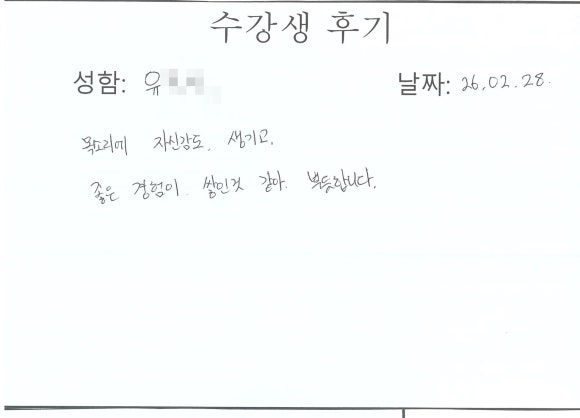 수강생 후기
성함: 유
날짜: 26.02.28.
목소리에 자신감도. 생기고.
좋은 경험이. 쌓인것 같아. 뿌듯합니다.